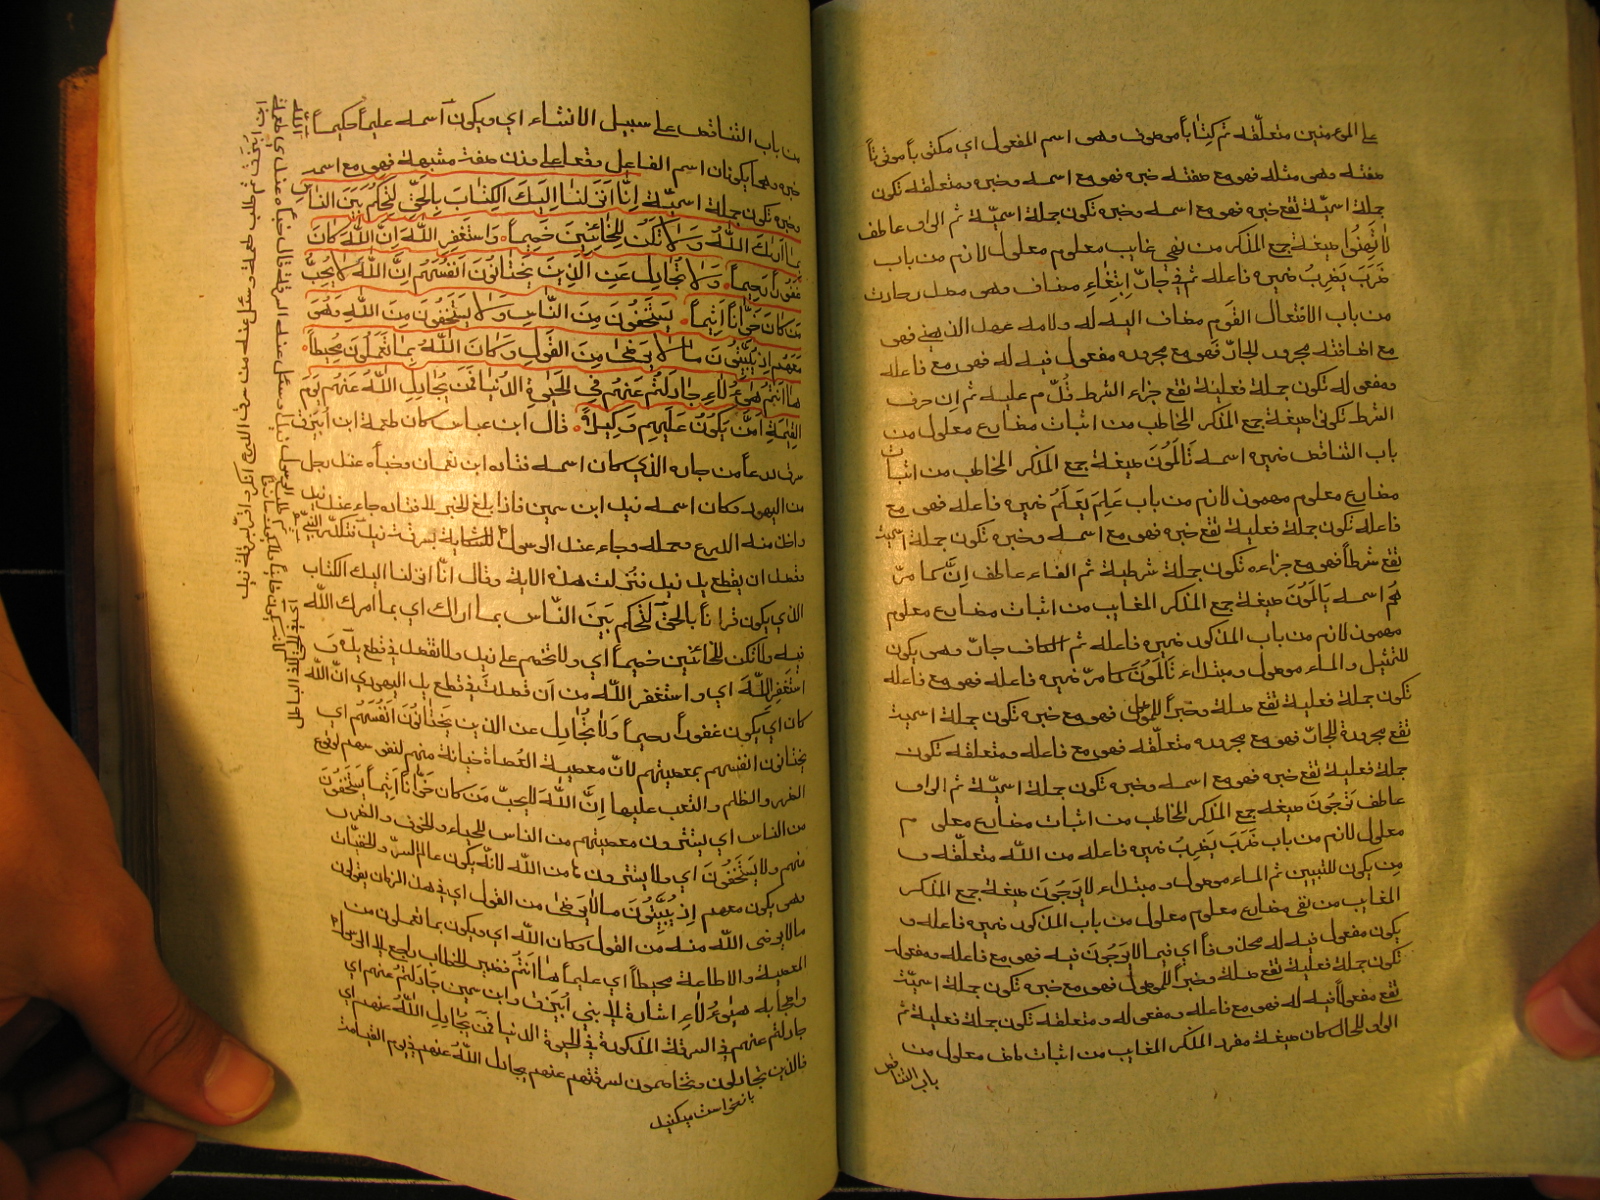 على المؤمنين متعلّقه ثم كِتَاباً موصوف وهى اسم المفعول اى مكتوباً موقوتاً
صفته وهى مثله فهو مع صفته خبره فهو مع اسمه وخبره ومتعلقه تكون
جملة اسميّة تقع خبره فهو مع اسمه وخبره تكون جملة اسميّة ثم الواو عاطف
لَا تَهِنُوا صيغة جمع المذكر من نهى غايب معلوم معلول لازم من باب
ضَرَبَ يَضْرِبُ ضميره فاعله ثم فى جارّ اِبْتِغَاءِ مضاف وهى مصدر
من باب الافتعال القَوم مضاف اليه له ولامه عهد الذهنى فهى
مع اضافته مجرور للجارّ فهو مع مجروره مفعول فيه له فهو مع فاعله
ومفعوله تكون جملة فعلية تقع جزاء الشرط قُدّم عليه ثم اِن حرف
الشرط تكونوا صيغة جمع المذكر المخاطب من اثبات مضارع معلول من
باب الناقص ضميره اسمه تَالَمُونَ صيغة جمع المذكر المخاطب من اثبات
مضارع معلوم مهموز لازم من باب عَلِمَ يَعْلَمُ ضميره فاعله فهو مع
فاعله تكون جملة فعلية تقع خبره فهو مع اسمه وخبره تكون جملة اسمية
تقع شرطاً فهو مع جزاءه تكون جملة شرطية ثم الفاء عاطف اِنَّ كما مرّ
هُم اسمه يَالَمُونَ صيغة جمع المذكر المغايب من اثبات مضارع معلوم
مهموز لازم من باب المذكور ضميره فاعله ثم الكاف جارّ وهى يكون
للتمثيل والماء موصول ومبتداء تَالَمُونَ كما مرّ ضميره فاعله فهو مع فاعله
تكون جملة فعلية تقع صلة وخبراً للموصول فهو مع خبره تكون جملة اسمية
تقع مجرورة للجارّ فهو مع مجروره متعلّقه فهو مع فاعله ومتعلقه تكون
جملة فعلية تقع خبره فهو مع اسمه وخبره تكون جملة اسميّة ثم الواو
عاطف تَرْجُونَ صيغة جمع المذكر المخاطب من اثبات مضارع معلوم
معلول لازم من باب ضَرَبَ يَضْرِبُ ضميره فاعله من اللّه متعلّقه و
مِن يكون للتبيين ثم الماء موصول ومبتداء لا يَرْجُونَ صيغة جمع المذكر
المغايب من نفى مضارع معلوم معلول من باب المذكور ضميره فاعله و
يكون مفعول فيه له محذوفاً اى فيما لا يَرْجُونَ فيه فهو مع فاعله ومفعوله
تكون جملة فعلية تقع صلة وخبراً للموصول فهو مع خبره تكون جملة اسميّة
تقع مفعولاً فيه له فهو مع فاعله ومفعوله ومتعلقه تكون جملة فعلية ثم
الواو للحال كان صيغة مفرد المذكر المغايب من اثبات ماض معلول من
باب الناقص
من باب الناقص على سبيل الانشاء اى ويكون اسمه عليماً حكيماً
خبره وهما يكونان اسم الفاعل وقعا على وزن صفة مشبهة فهو مع اسمه
وخبره تكون جملة اسميّة اِنَّا اَنْزَلْنَا اِلَيْكَ الْكِتَابَ بِالْحَقِّ لِتَحْكُمَ بَيْنَ النَّاسِ
بِمَا اَرٰيكَ اللّٰهُ وَلَا تَكُنْ لِلْخَائِنِينَ خَصِيماً وَاسْتَغْفِرِ اللّٰهَ اِنَّ اللّٰهَ كَانَ
غَفُوراً رَحِيماً وَلَا تُجَادِلْ عَنِ الَّذِينَ يَخْتَانُونَ اَنْفُسَهُمْ اِنَّ اللّٰهَ لَا يُحِبُّ
مَن كَانَ خَوَّاناً اَثِيماً يَسْتَخْفُونَ مِنَ النَّاسِ وَلَا يَسْتَخْفُونَ مِنَ اللّٰهِ وَهُوَ
مَعَهُمْ اِذْ يُبَيِّتُونَ مَا لَا يَرْضٰى مِنَ الْقَوْلِ وَكَانَ اللّٰهُ بِمَا تَعْمَلُونَ مُحِيطاً
هَا اَنْتُمْ هٰؤُلَاءِ جَادَلْتُمْ عَنْهُمْ فِى الْحَيٰوةِ الدُّنْيَا فَمَنْ يُجَادِلُ اللّٰهَ عَنْهُمْ يَوْمَ
الْقِيٰمَةِ اَمَّن يَكُونُ عَلَيْهِمْ وَكِيلاً قال ابن عباس كان طعمة ابن اُبَيْرِق
سرق درعاً من جاره الذى كان اسمه قتاده ابن نعمان وخبأه عند رجل
من اليهود وكان اسمه زيد ابن سمين فاذا بلغ الخبر لقتاده جاء عند زيد
واخذ منه الدرع وحمله وجاء عند الرسول للشكاية بسرقة زيد
وقصد ان يقطع يد زيد فنزلت هذه الاية وقال انّا انزلنا اليك الكتاب
الذى يكون قراناً بالحقّ لتحكم بَيْنَ النّاس بما اراك اى بما امرك اللّه
فيه ولا تكن للخائنين خصيماً اى ولا تخصم على زيد ولا تقصد فى قطع يده و
استغفر اللّهَ اى واستغفر اللّه من اَن قصدتَ فى قطع يد اليهودى انّ اللّه
كان اى يكون غفوراً رحيماً وَلَا تُجَادِل عن الذين يَخْتَانُونَ اَنْفُسَهُم اى
يختانون انفسهم بمعصيتهم لانّ معصية العُصاة خيانة منهم لنفوسهم لوقوع
الضرر والظلم والتعب عليها اِنَّ اللّٰهَ لا يحبّ مَن كان خَوَّاناً اَثِيماً يَسْتَخْفُونَ
من الناس اى يستترون معصيتهم من الناس للحياء والخوف والضرر
منهم ولا يَسْتَخْفُونَ اى ولا يستترونها من اللّه لانّه يكون عالم السرّ والخفيّات
وهى يكون معهم اِذْ يُبَيِّتُونَ مَا لَا يَرْضٰى من القول اى فى هذا الزمان يقولون
ما لا يرضى اللّه منه من القول وكان اللّه اى ويكون بما تعملون من
المعصية والاطاعة محيطاً اى عليماً هَا اَنْتُم فضمير الخطاب راجع الى الرسول
واصحابه هٰؤُلَاءِ اشارة الى بنى اُبَيْرِق وابن سمين جَادَلْتُم عنهم اى
جادلتم عنهم فى السرقة المذكورة فى الحيوة الدنيا فَمَن يُجَادِل اللّٰهَ عنهم اى
فالذين يجادلون وتخاصمون لسرقتهم عنهم يجادل اللّٰهُ عنهم فى يوم القيامة